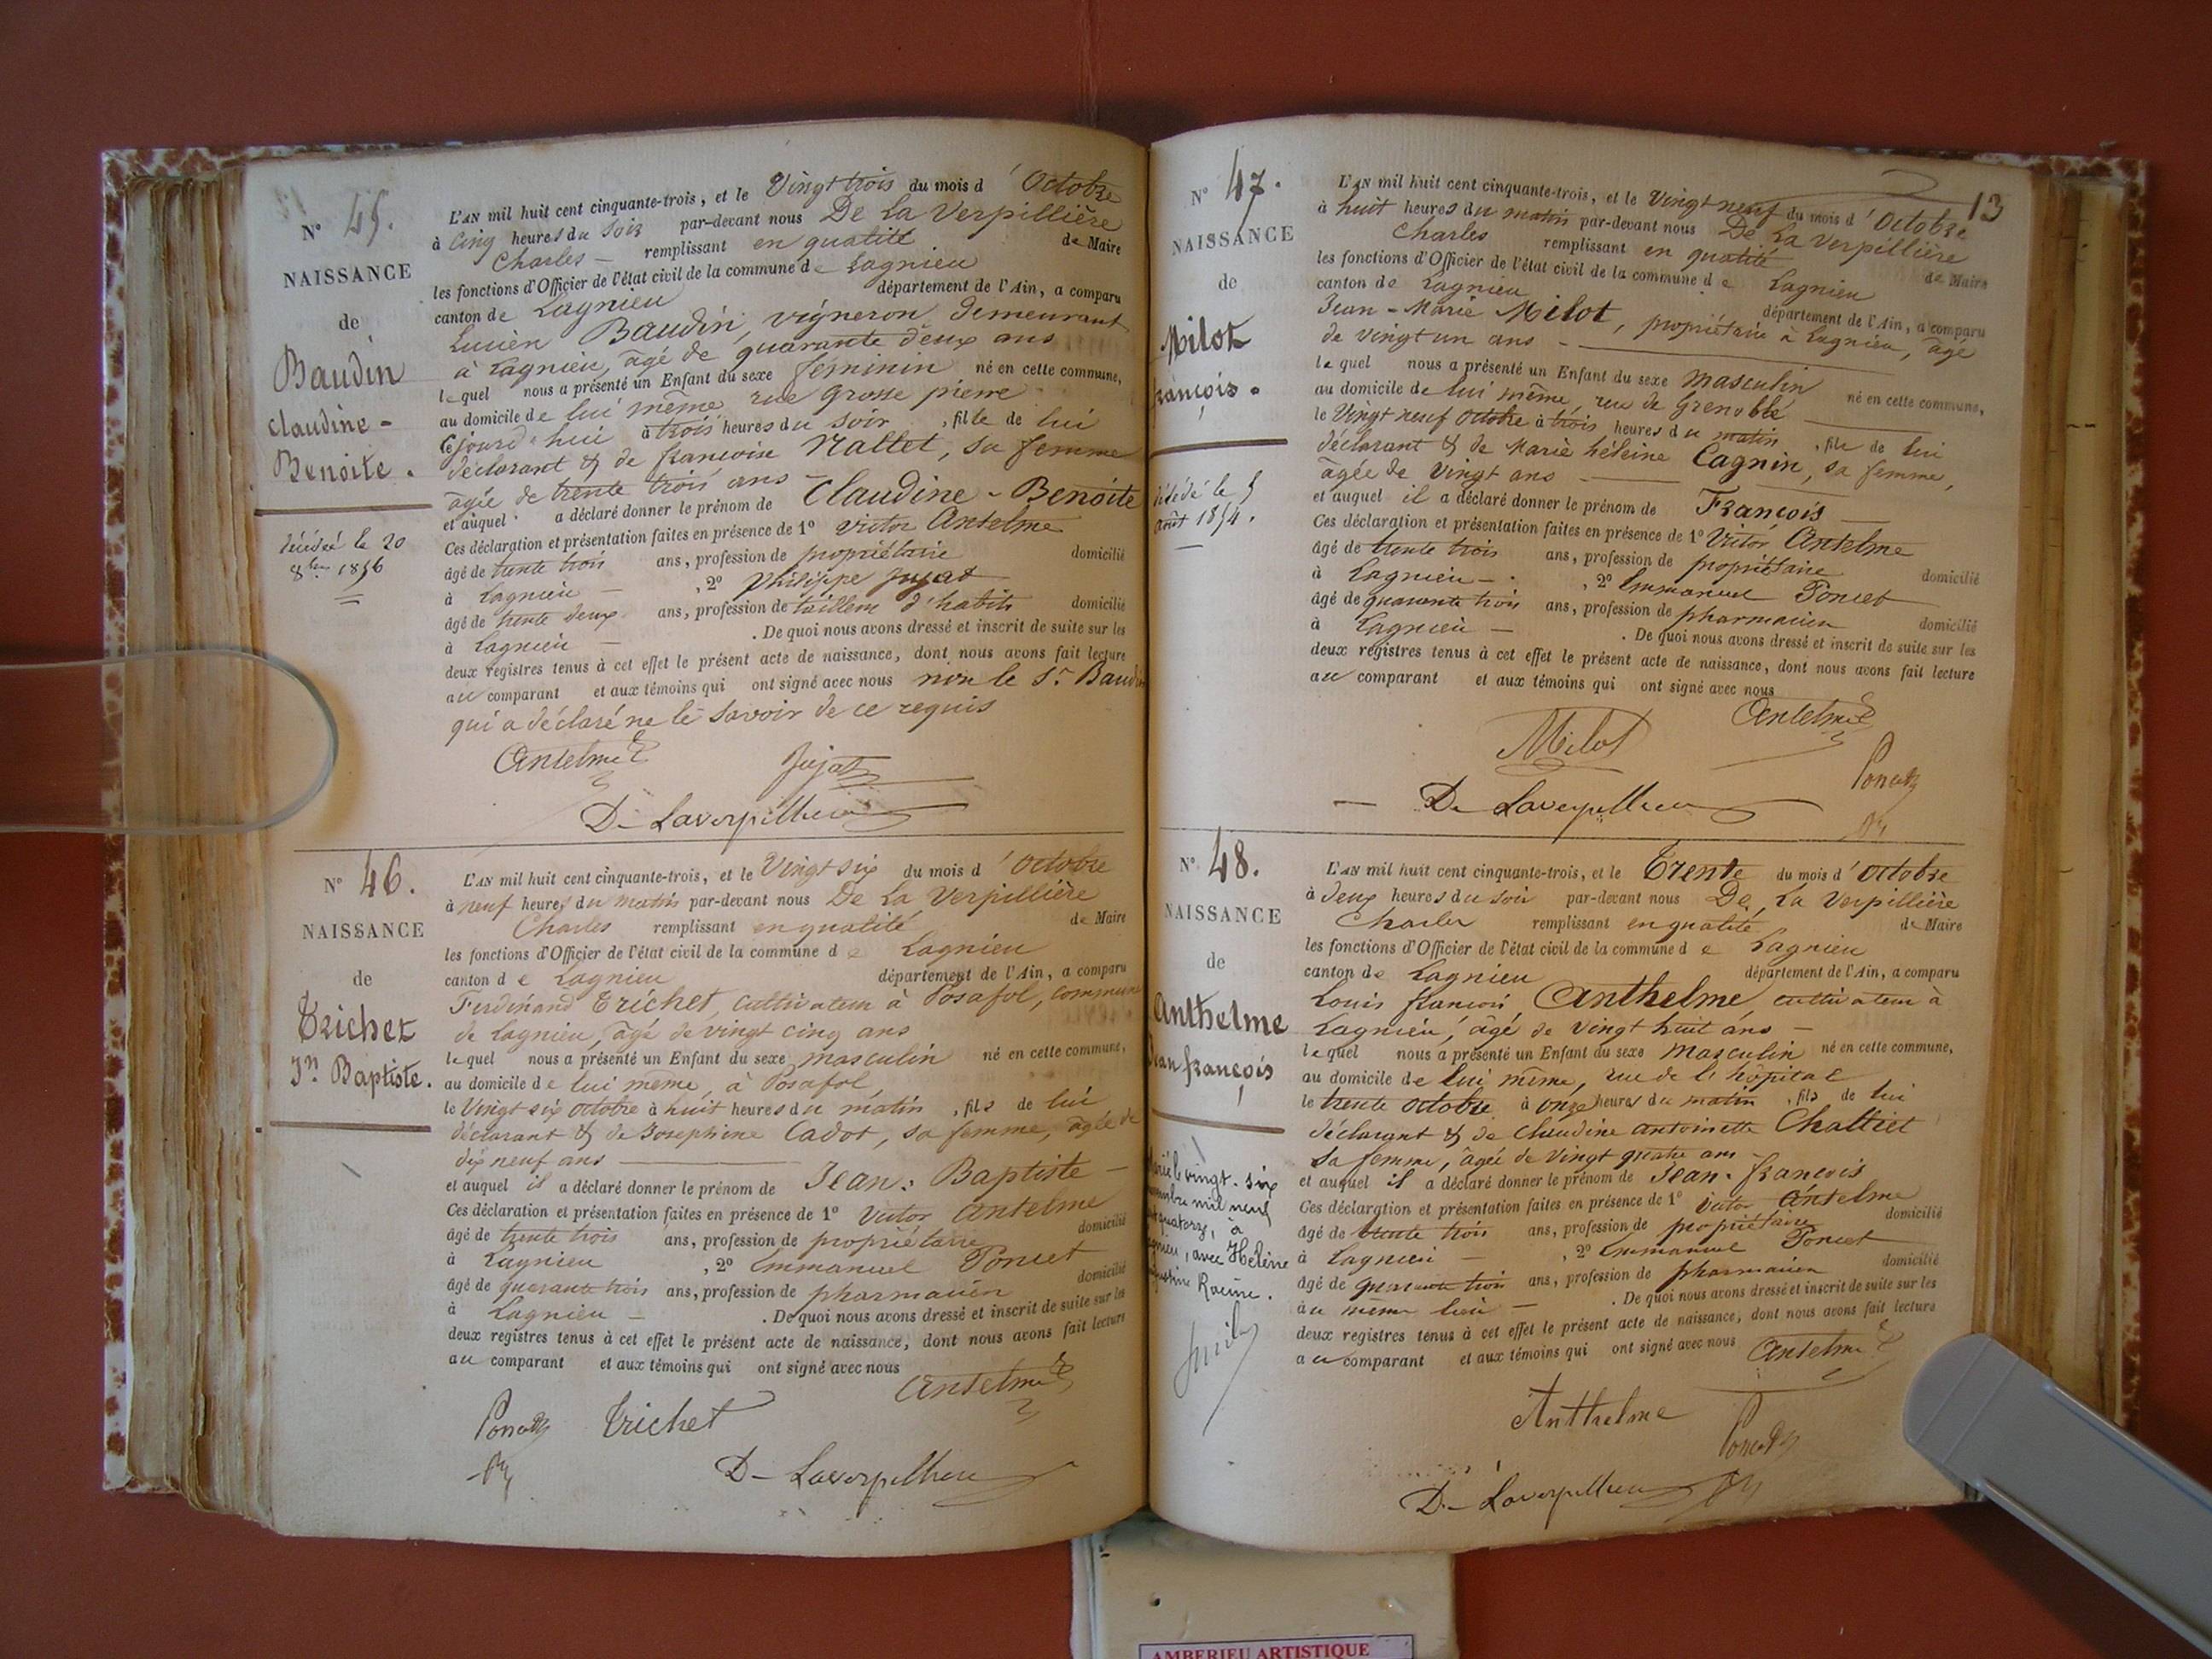 N° 45.
NAISSANCE
de
Baudin
Claudine -
Benoite.
décédée le 20
8bre 1856
L'AN mil huit cent cinquante-trois, et le Vingt trois du mois d'Octobre
à Cinq heures du Soir par-devant nous De La Verpillière
Charles - remplissant en qualité de Maire
les fonctions d'Officier de l'état civil de la commune de Lagnieu
canton de Lagnieu département de l'Ain, a comparu
Lucien Baudin, vigneron, demeurant
à Lagnieu, âgé de quarante deux ans
lequel nous a présenté un Enfant du sexe féminin né en cette commune,
au domicile de lui même rue grosse pierre
Cejourd'hui à trois heures du soir, fille de lui
déclarant & de françoise Nallet, sa femme
âgée de trente trois ans -
et auquel a déclaré donner le prénom de Claudine - Benoite
Ces déclaration et présentation faites en présence de 1° Victor Antelme
âgé de trente trois ans, profession de propriétaire domicilié
à Lagnieu - , 2° Philippe Jujat
âgé de trente deux ans, profession de tailleur d'habits domicilié
à Lagnieu - . De quoi nous avons dressé et inscrit de suite sur les
deux registres tenus à cet effet le présent acte de naissance, dont nous avons fait lecture
au comparant et aux témoins qui ont signé avec nous non le Sr Baudin
qui a déclaré ne le savoir de ce requis
Antelme Jujat
De Laverpillière
N° 46.
NAISSANCE
de
Trichet
Jn Baptiste.
L'AN mil huit cent cinquante-trois, et le Vingt six du mois d'Octobre
à neuf heures du matin par-devant nous De La Verpillière
Charles remplissant en qualité de Maire
les fonctions d'Officier de l'état civil de la commune de Lagnieu
canton de Lagnieu département de l'Ain, a comparu
Ferdinand Trichet, cultivateur à Posafol, commune
de Lagnieu, âgé de vingt cinq ans
lequel nous a présenté un Enfant du sexe masculin né en cette commune,
au domicile de lui même, à Posafol
le Vingt six octobre à huit heures du matin, fils de lui
déclarant & de Josephine Cadot, sa femme, âgée de
dix neuf ans
et auquel il a déclaré donner le prénom de Jean-Baptiste -
Ces déclaration et présentation faites en présence de 1° Victor Antelme
âgé de trente trois ans, profession de propriétaire domicilié
à Lagnieu , 2° Emmanuel Poncet
âgé de quarante trois ans, profession de pharmacien domicilié
à Lagnieu - . De quoi nous avons dressé et inscrit de suite sur les
deux registres tenus à cet effet le présent acte de naissance, dont nous avons fait lecture
au comparant et aux témoins qui ont signé avec nous
Antelme
Poncet Trichet
De Laverpillière
13
N° 47.
NAISSANCE
de
Milot
françois.
décédé le 5
août 1854.
L'AN mil huit cent cinquante-trois, et le Vingt neuf du mois d'Octobre
à huit heures du matin par-devant nous De La Verpillière
Charles remplissant en qualité de Maire
les fonctions d'Officier de l'état civil de la commune de Lagnieu
canton de Lagnieu département de l'Ain, a comparu
Jean-Marie Milot, propriétaire à Lagnieu, âgé
de vingt un ans -
lequel nous a présenté un Enfant du sexe Masculin né en cette commune,
au domicile de lui même, rue de Grenoble
le Vingt neuf Octobre à trois heures du matin, fils de lui
déclarant & de Marie héleine Cagnin, sa femme,
âgée de vingt ans
et auquel il a déclaré donner le prénom de François
Ces déclaration et présentation faites en présence de 1° Victor Antelme
âgé de trente trois ans, profession de propriétaire domicilié
à Lagnieu - , 2° Emmanuel Poncet
âgé de quarante trois ans, profession de pharmacien domicilié
à Lagnieu - . De quoi nous avons dressé et inscrit de suite sur les
deux registres tenus à cet effet le présent acte de naissance, dont nous avons fait lecture
au comparant et aux témoins qui ont signé avec nous
Antelme
Milot
Poncet
De Laverpillière
N° 48.
NAISSANCE
de
Anthelme
Jean françois
vingt-six
mil neuf
quatorze, à
, avec Hélène
Racine.
L'AN mil huit cent cinquante-trois, et le Trente du mois d'Octobre
à deux heures du soir par-devant nous De La Verpillière
Charles remplissant en qualité de Maire
les fonctions d'Officier de l'état civil de la commune de Lagnieu
canton de Lagnieu département de l'Ain, a comparu
Louis françois Anthelme, cultivateur à
Lagnieu, âgé de Vingt huit ans -
lequel nous a présenté un Enfant du sexe Masculin né en cette commune,
au domicile de lui même, rue de l'hôpital
le trente Octobre à onze heures du matin, fils de lui
déclarant & de Claudine antoinette Chaltiet
sa femme, âgée de vingt quatre ans -
et auquel il a déclaré donner le prénom de Jean-françois
Ces déclaration et présentation faites en présence de 1° Victor Antelme
âgé de trente trois ans, profession de propriétaire domicilié
à Lagnieu - , 2° Emmanuel Poncet
âgé de quarante trois ans, profession de pharmacien domicilié
au même lieu - . De quoi nous avons dressé et inscrit de suite sur les
deux registres tenus à cet effet le présent acte de naissance, dont nous avons fait lecture
au comparant et aux témoins qui ont signé avec nous Antelme
Anthelme
Poncet
De Laverpillière
AMBERIEU ARTISTIQUE